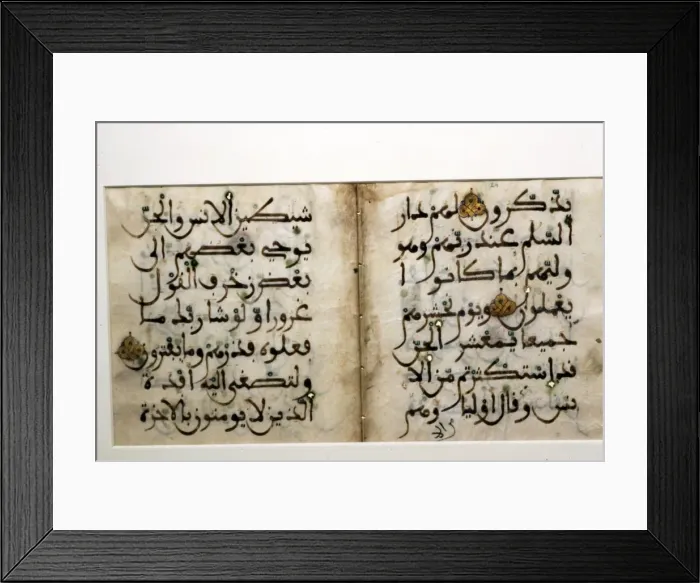 يذّكّرون لهم دار
السّلم عند ربّهم وهو
وليّهم بما كانوا
يعملون ويوم نحشرهم
جميعا يمعشر الجنّ
قد استكثرتم مّن الا
نس وقال اولياوهم
شيطين الانس والجنّ
يوحي بعضهم الى
بعض زخرف القول
غرورا ولو شا ربّك ما
فعلوه فذرهم وما يفترون
ولتصغى اليه افدة
الّذين لا يومنون بالاخرة